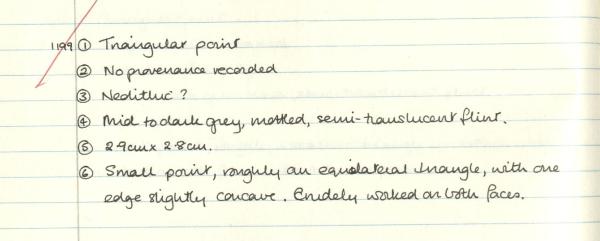 1199 ① Triangular point
② No provenance recorded
③ Neolithic ?
④ Mid to dark grey, mottled, semi-translucent flint.
⑤ 2.9cm x 2.8cm.
⑥ Small point, roughly an equilateral triangle, with one
edge slightly concave. Crudely worked on both faces.